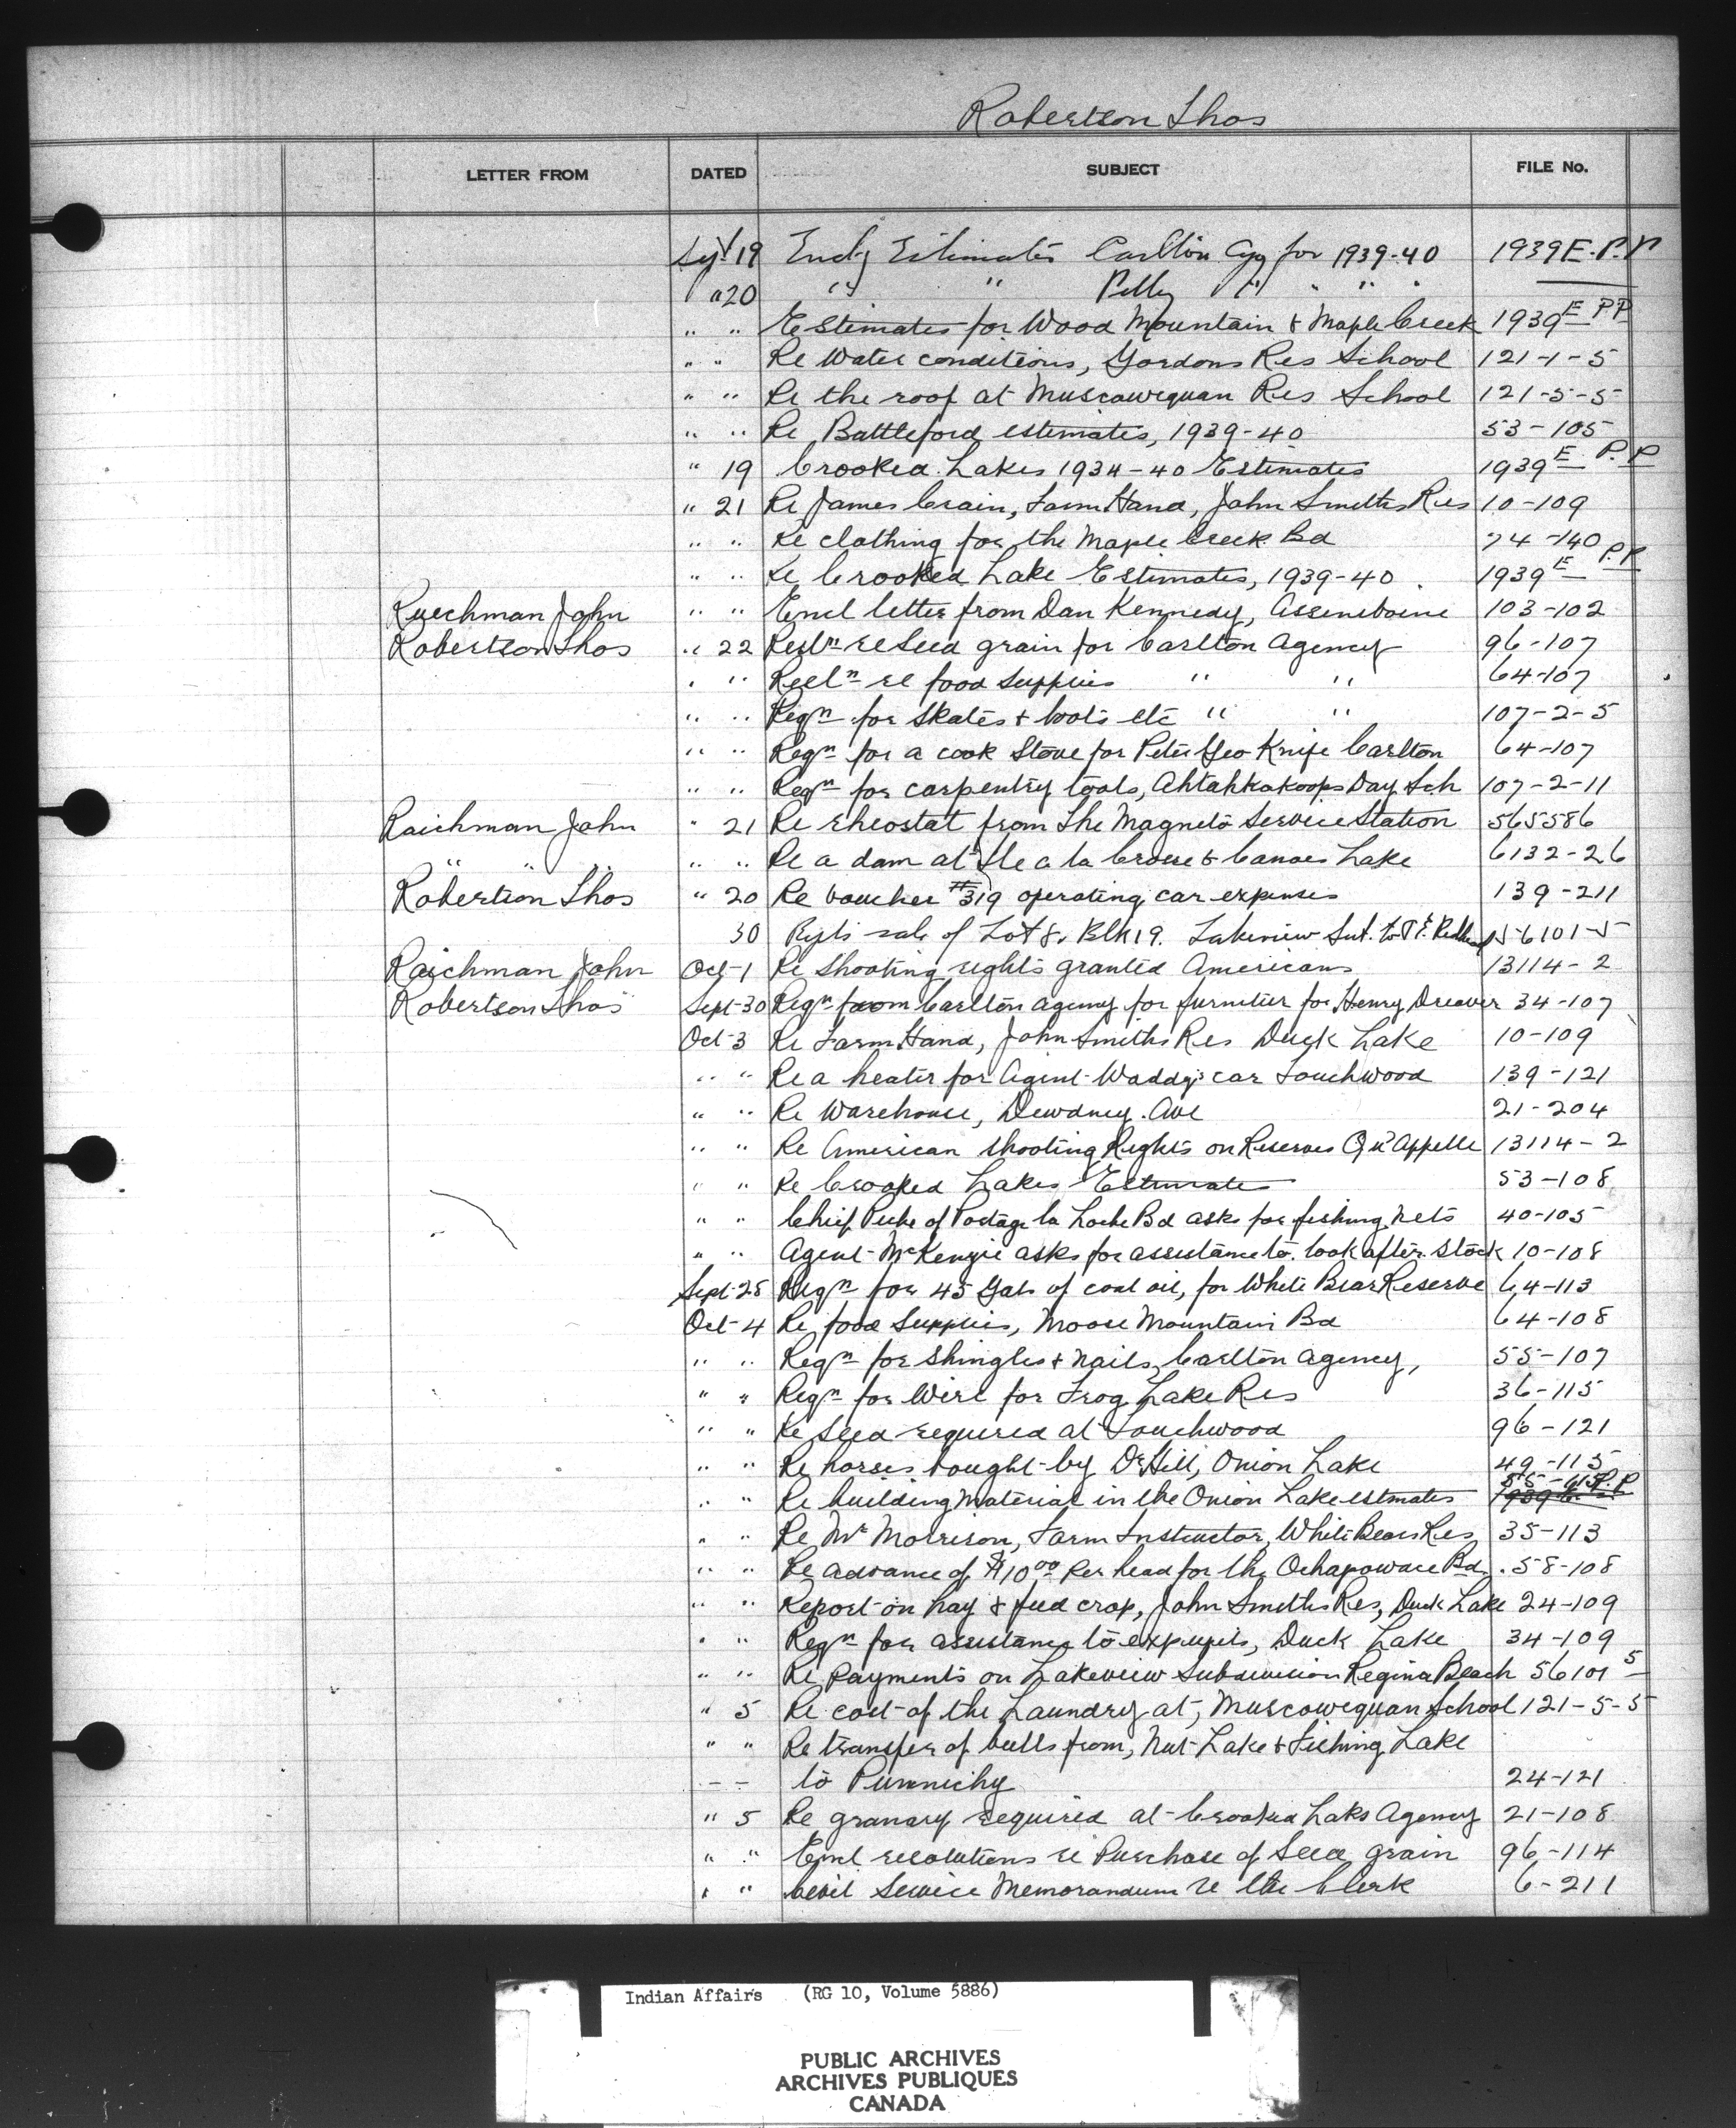 Robertson Thos
LETTER FROM DATED SUBJECT FILE No.
Sept 19 Encl'g Estimates Carlton Agy for 1939-40 1939 E. P.P
" 20 " " Pelly " " " "
" " Estimates for Wood Mountain & Maple Creek 1939 E P.P
" " Re Water conditions, Gordons Res School 121-1-5
" " Re the roof at Muscowequan Res School 121-5-5
" " Re Battleford estimates, 1939-40 53-105
" 19 Crooked Lakes 1934-40 Estimates 1939 E P.P
" 21 Re James Crain, Farm Hand, John Smiths Res 10-109
" " Re clothing for the Maple Creek Bd 74-140
" " Re Crooked Lake Estimates, 1939-40 1939 E P.P
Ruechman John " " Encl letter from Dan Kennedy, Assineboine 103-102
Robertson Thos " 22 re Seed grain for Carlton Agency 96-107
" " re food supplies " " 64-107
" " Reqn for Skates & boots etc " " 107-2-5
" " Reqn for a cook Stove for Peter Geo Knife Carlton 64-107
" " Reqn for carpentry tools, Ahtahkakoops Day Sch 107-2-11
Raichman John " 21 Re rheostat from The Magneto Service Station 565586
" " " " Re a dam at Ile a la Crosse & Canoe Lake 6132-26
Robertson Thos " 20 Re voucher #319 operating car expenses 139-211
30 sale of Lot 8. Blk 19. Lakeview Sub. to 56101-5
Raichman John Oct-1 Re Shooting rights granted Americans 13114-2
Robertson Thos Sept-30 Reqn from Carlton Agency for furniture for Henry Dreaver 34-107
Oct-3 Re Farm Hand, John Smiths Res Duck Lake 10-109
" " Re a heater for Agent Waddy's car Touchwood 139-121
" " Re Warehouse, Dewdney Ave 21-204
" " Re American Shooting Rights on Reserves Qu'Appelle 13114-2
" " Re Crooked Lakes Estimates 53-108
" " Chief of Portage la Loche Bd asks for fishing nets 40-105
" " Agent McKenzie asks for assistance to look after Stock 10-108
Sept-28 Reqn for 45 Gals of coal oil, for White Bear Reserve 64-113
Oct-4 Re food Supplies, Moose Mountain Bd 64-108
" " Reqn for Shingles & nails, Carlton Agency, 55-107
" " Reqn for Wire for Frog Lake Res 36-115
" " Re Seed required at Touchwood 96-121
" " Re horses bought by Dr Hill, Onion Lake 49-115
" " Re building material in the Onion Lake estimates 55-115 P.P
" " Re Mr Morrison, Farm Instructor, White Bears Res 35-113
" " Re advance of $10.00 per head for the Ochapowace Bd. 58-108
" " Report on hay & feed crop, John Smiths Res, Duck Lake 24-109
" " Reqn for assistance to expupils, Duck Lake 34-109
" " Re Payments on Lakeview Subdivision Regina Beach 56101 5
" 5 Re cost of the Laundry at, Muscowequan School 121-5-5
" " Re transfer of bulls from, Nut Lake & Fishing Lake
- - to Punnichy 24-121
" 5 Re granary required at Crooked Laks Agency 21-108
" " Encl resolutions re Purchase of Seed grain 96-114
" " Civil Service Memorandum re the Clerk 6-211
Indian Affairs (RG 10, Volume 5886)
PUBLIC ARCHIVES
ARCHIVES PUBLIQUES
CANADA